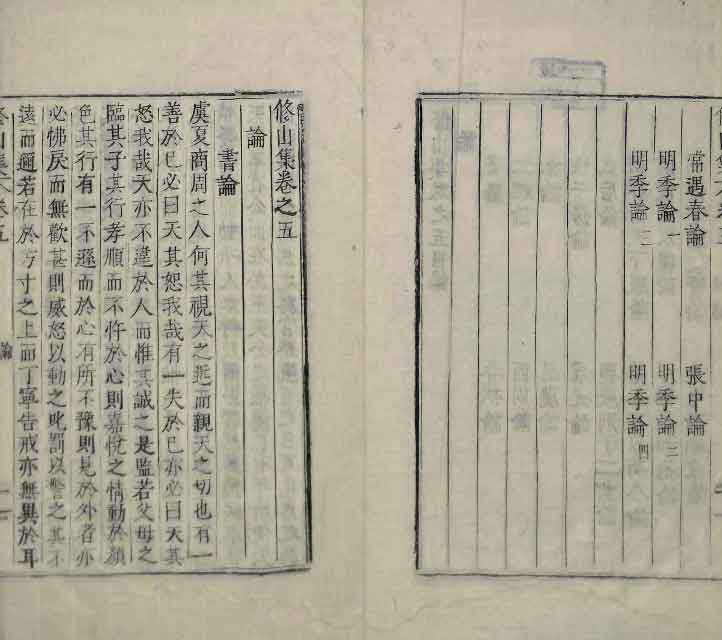 常遇春論 張中論
明季論一 明季論二
明季論三 明季論四
修山集卷之五
論
書論
虞夏商周之人何其視天之近而親天之切也有一
善於已必曰天其恕我哉有一失於已亦必曰天其
怒我哉天亦不違於人而惟其誠之是監若父母之
臨其子其行孝順而不忤於心則嘉悅之情動於顔
色其行有一不遜而於心有所不豫則見於外者亦
必怫戾而無歡甚則威怒以動之叱罰以警之其不
遠而邇若在於方寸之上而丁寧告戒亦無異於耳
論